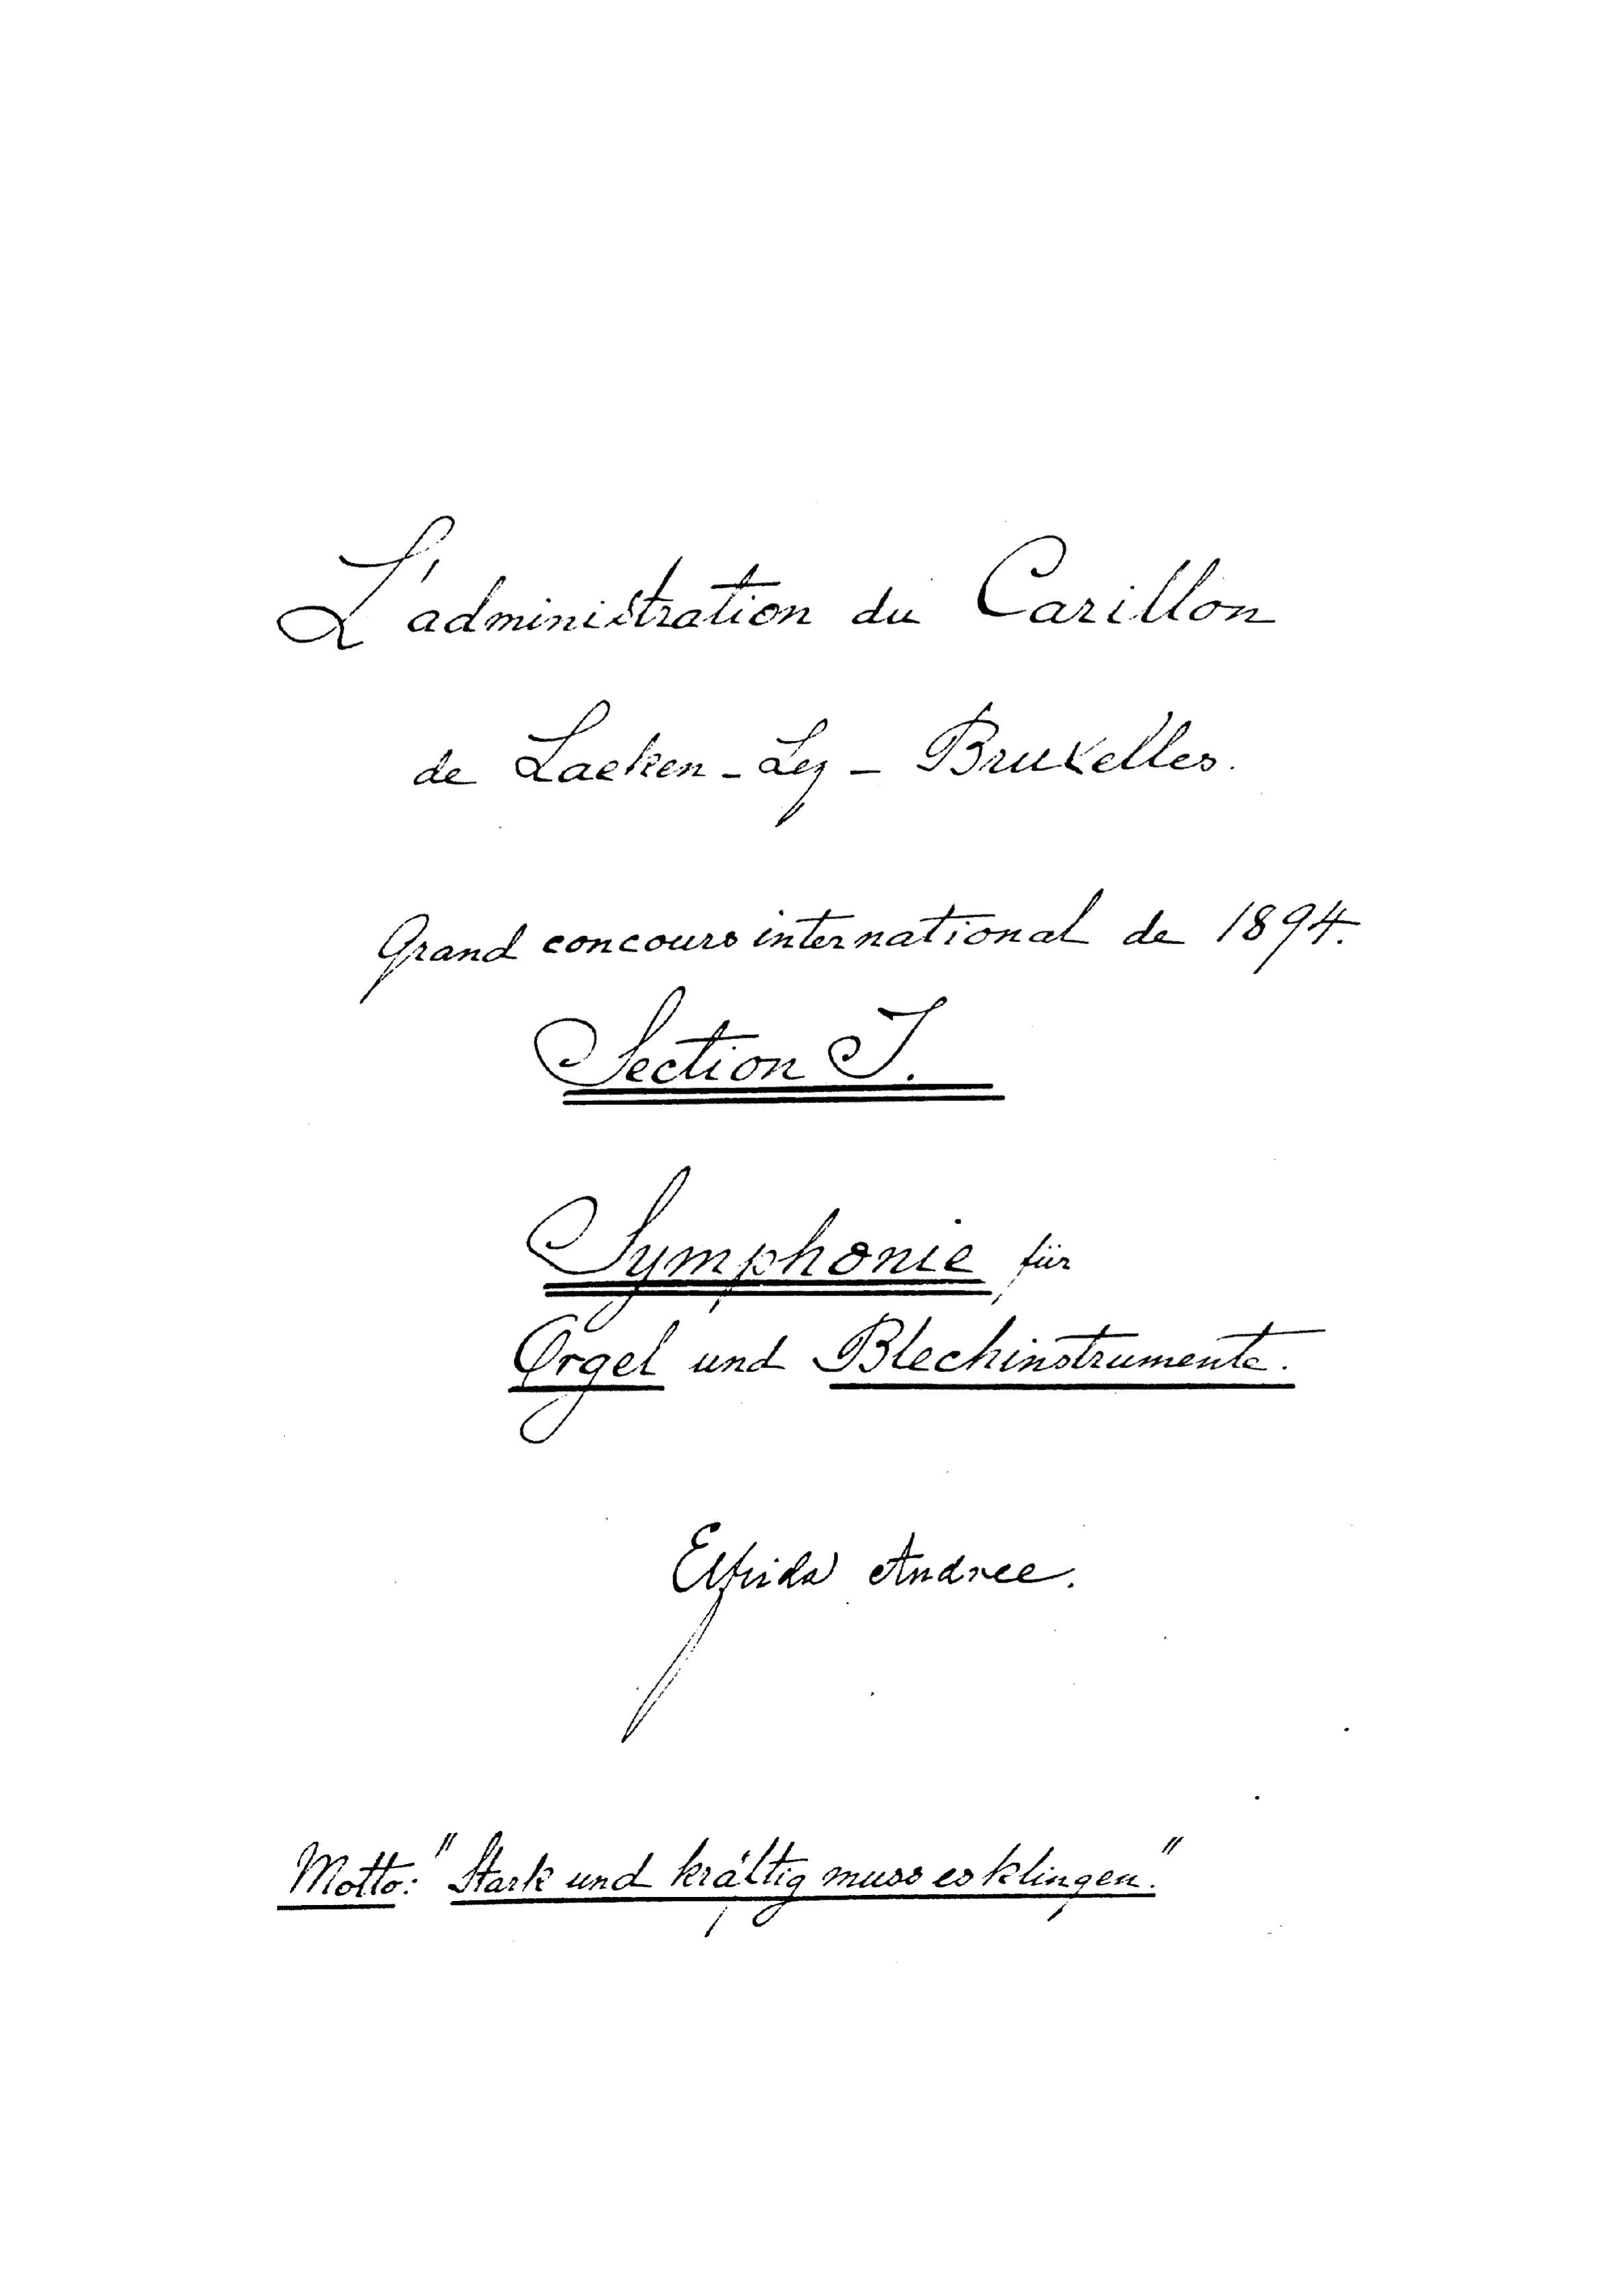 L'administration du Carillon
de Laeken-Lez-Bruxelles.
Grand concours international de 1894.
Section I.
Symphonie für
Orgel und Blechinstrumente.
Elfrida Andree.
Motto: "Stark und kräftig muss es klingen."